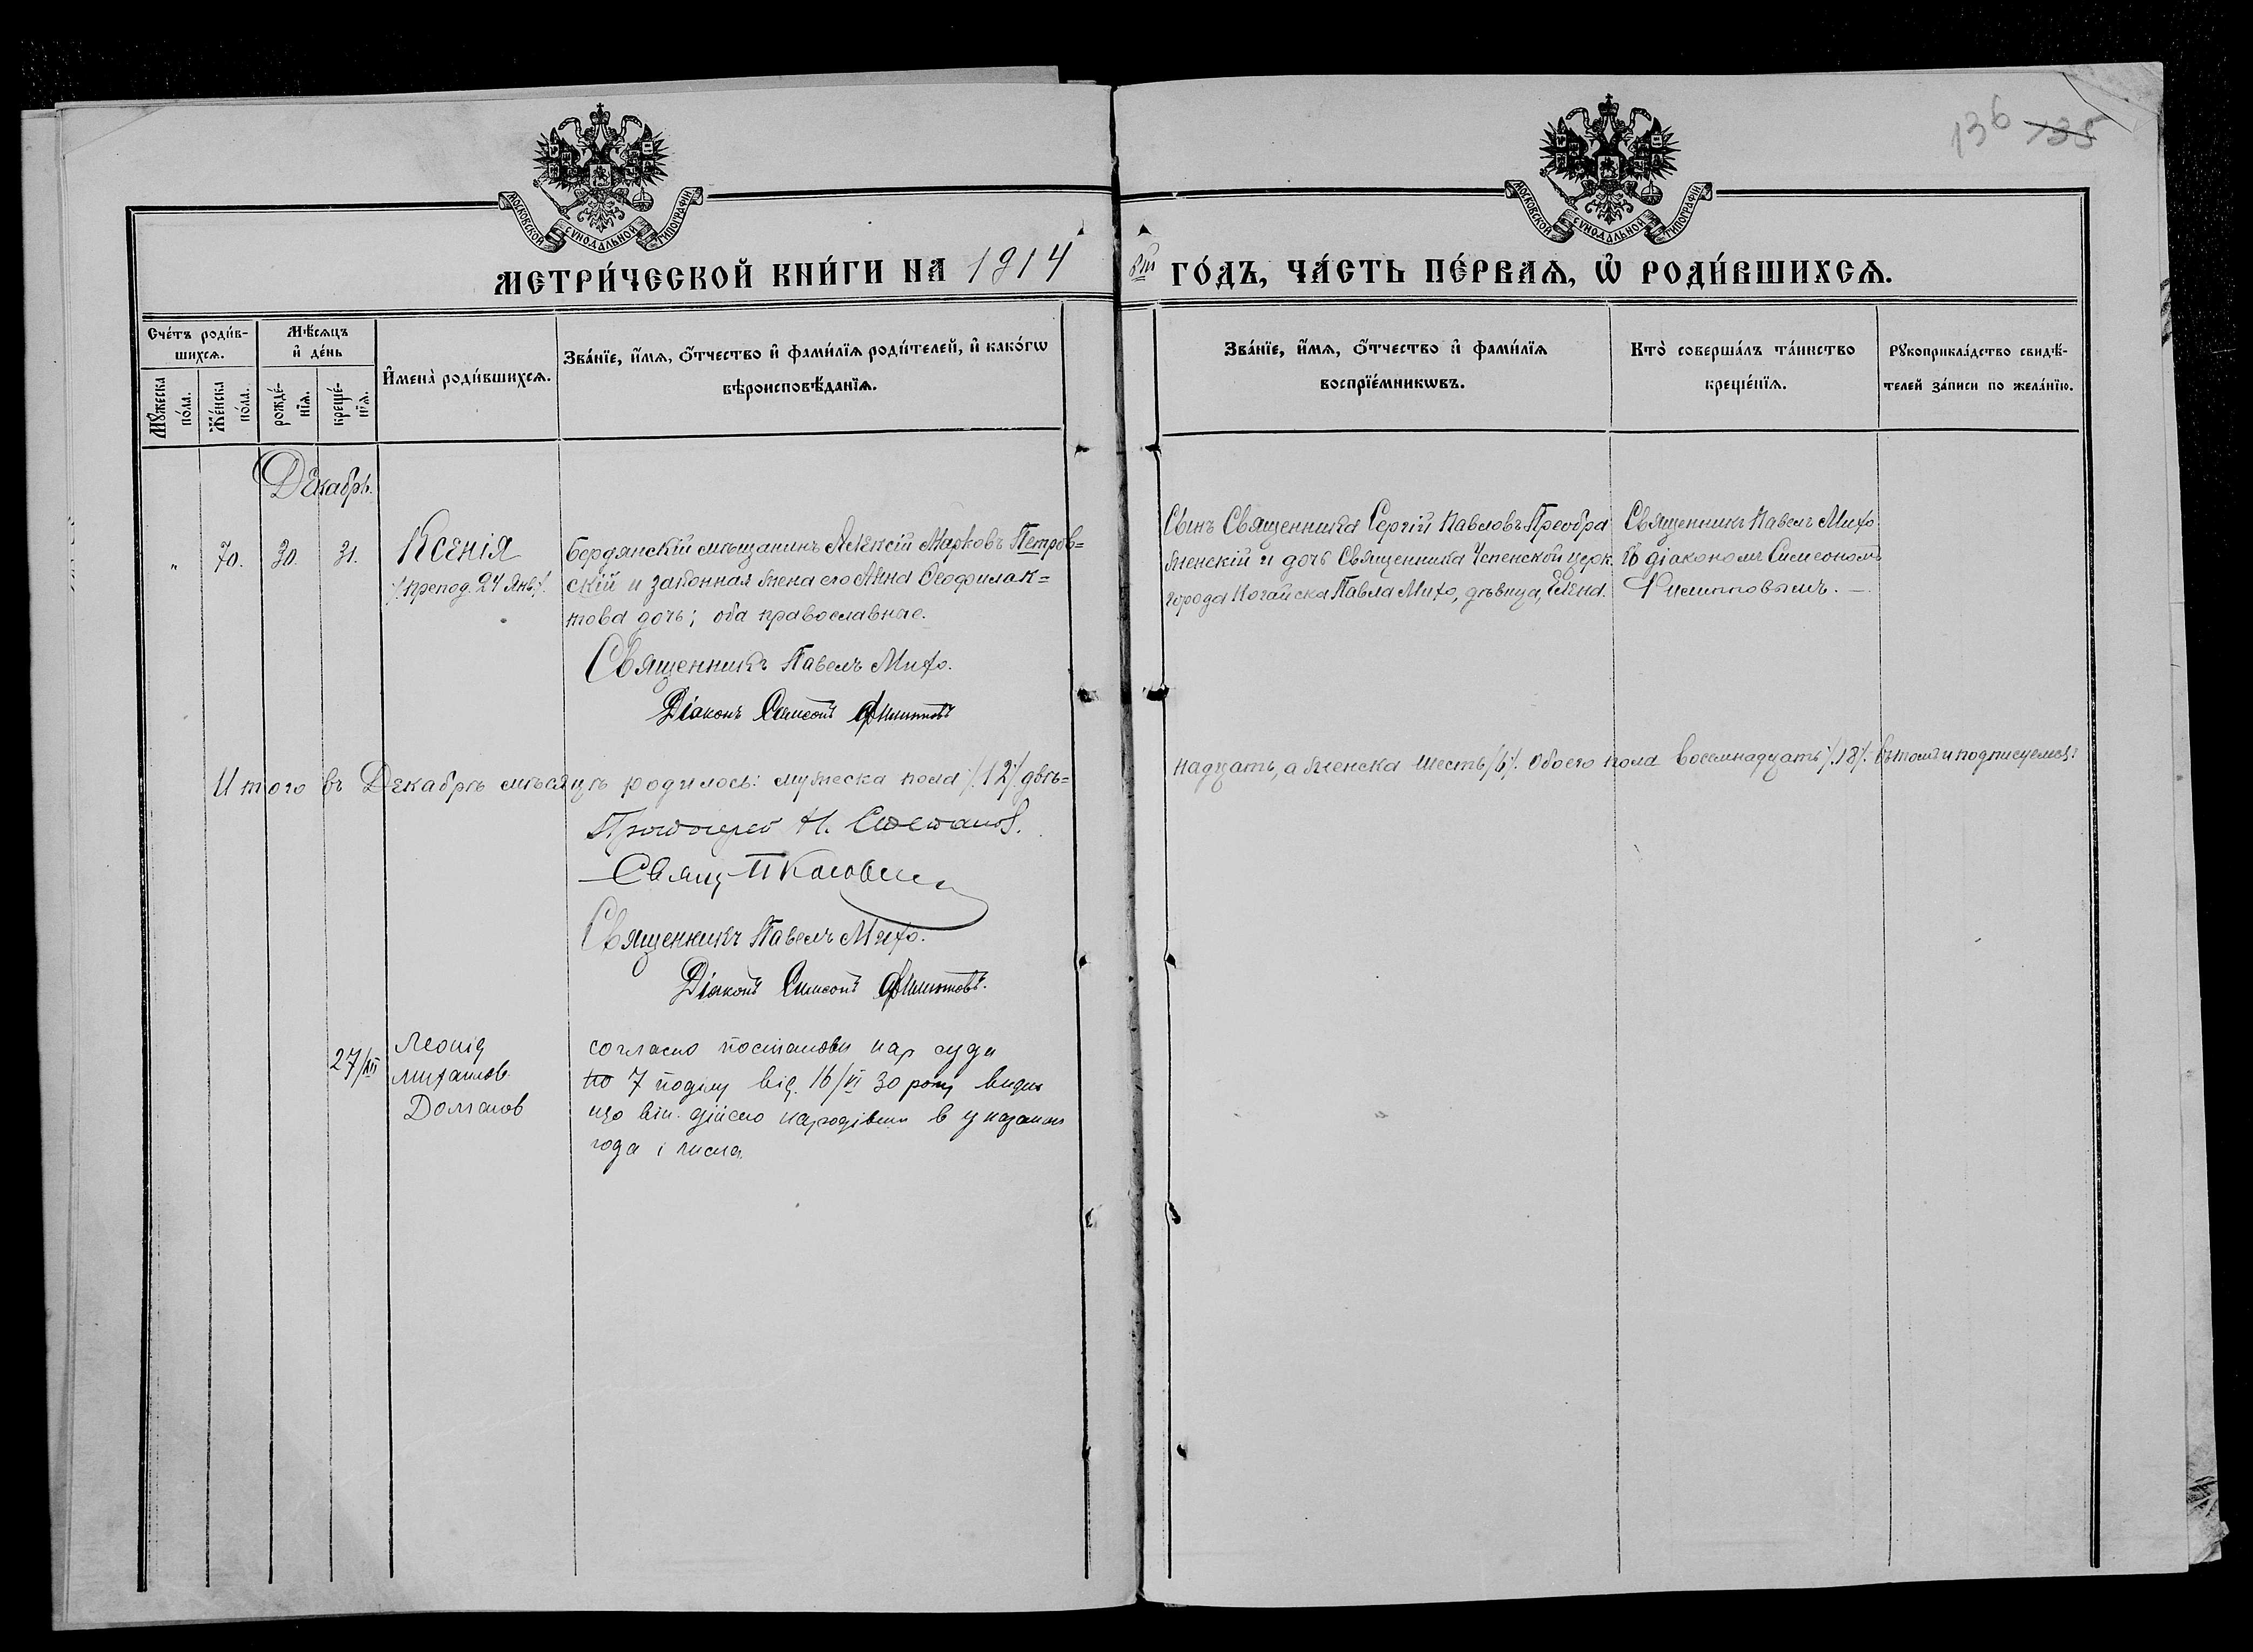 136 135
МОСКОВСКОЙ СѴНОДАЛЬНОЙ ТИПОГРАФІИ
МОСКОВСКОЙ СѴНОДАЛЬНОЙ ТИПОГРАФІИ
МЕТРИ́ЧЕСКОЙ КНИ́ГИ НА 1914
ый ГО́ДЪ, ЧА́СТЬ ПЕ́РВАѦ, Ѡ҆ РОДИ́ВШИХСѦ.
Сче́тъ роди́в-
шихсѧ.
Мꙋжеска по́ла.
Же́нска по́ла.
Мѣ́сѧцъ
и҆ де́нь
рожде́-
нїѧ.
креще́-
нїѧ.
И҆мена̀ роди́вшихсѧ.
Зва́нїе, и҆́мѧ, ѻ҆́тчество и҆ фами́лїѧ роди́телей, и҆ како́гѡ
вѣроисповѣ́данїѧ.
Зва́нїе, и҆́мѧ, ѻ҆́тчество и҆ фами́лїѧ
воспрїе́мникѡвъ.
Кто̀ соверша́лъ та́инство
креще́нїѧ.
Рꙋкоприкла́дство свидѣ́-
телей за́писи по жела́нїю.
Декабрь.
" 70. 30. 31.
Ксенія
/препод. 24 Янв./.
Бердянскій мѣщанинъ Алексій Марковъ Петров=
скій и законная жена его Анна Феофилак=
това дочь; оба православные.
Священникъ Павелъ Михо.
Діаконъ Симеонъ Филипповъ
Сынъ Священника Сергій Павловъ Преобра
женскій и дочь Священника Успенской церк.
города Ногайска Павла Михо, дѣвица, Елена.
Священникъ Павелъ Михо
съ діакономъ Симеономъ
Филипповымъ. —
Итого въ Декабрѣ мѣсяцѣ родилось: мужеска пола /.12/. двѣ=
надцать, а женска шесть /6/. Обоего пола восемнадцать /.18/. въ томъ и подписуемся:
Протоиерей Н. Стефанов.
Свящ. П
Священникъ Павелъ Михо.
Діаконъ Симеонъ Филипповъ.
27/XII
Леонід
Михаилов
Долганов
согласно постанови нар суда
по 7 поділу від. 16/VI 30 року видно
що він дійсно народівся в указаном
года і числа